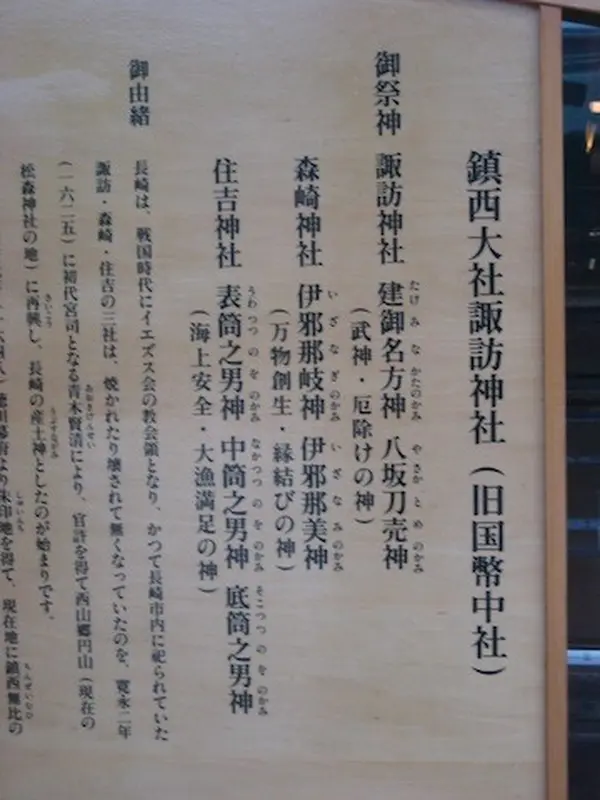 鎮西大社諏訪神社（旧国幣中社）
御祭神 諏訪神社 建御名方神 八坂刀売神
たけみなかたのかみ やさかとめのかみ
（武神・厄除けの神）
森崎神社 伊邪那岐神 伊邪那美神
いざなぎのかみ いざなみのかみ
（万物創生・縁結びの神）
住吉神社 表筒之男神 中筒之男神 底筒之男神
うわつつのをのかみ なかつつのをのかみ そこつつのをのかみ
（海上安全・大漁満足の神）
御由緒
長崎は、戦国時代にイエズス会の教会領となり、かつて長崎市内に祀られていた
諏訪・森崎・住吉の三社は、焼かれたり壊されて無くなっていたのを、寛永二年
（一六二五）に初代宮司となる青木賢清により、官許を得て西山郷円山（現在の
あおきけんせい
松森神社の地）に再興し、長崎の産土神としたのが始まりです。
さいこう うぶすながみ
徳川幕府より朱印地を得て、現在地に鎮西無比の
しゅいんち ちんぜいむひ